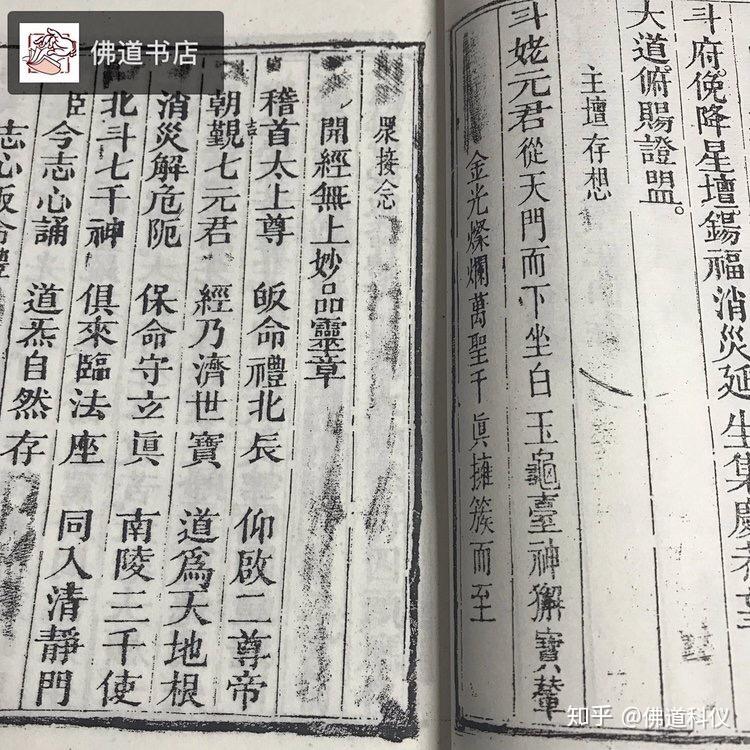 佛道书店
斗府俛降星壇錫福消災延生集慶者
大道俯賜證盟。
主壇存想
斗姥元君從天門而下坐白玉龜臺神獬寶輦
金光燦爛萬聖千眞擁簇而至
眾接念
開經無上妙品靈章
稽首太上尊 皈命禮北辰 仰啟二尊帝
朝覲七元君 經乃濟世寶 道爲天地根
消災解危阨 保命守立眞 南陵三千使
北斗七千神 俱來臨法座 同入清靜門
臣今志心誦 道炁自然存
志心皈命禮
知乎 @佛道科仪